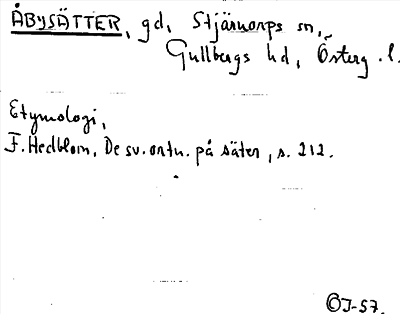 ÅBYSÄTTER, gd, Stjärnorps sn,
Gullbergs hd, Österg. l.
Etymologi,
F. Hedblom, De sv. ortn. på säter, s. 212.
OJ-57.